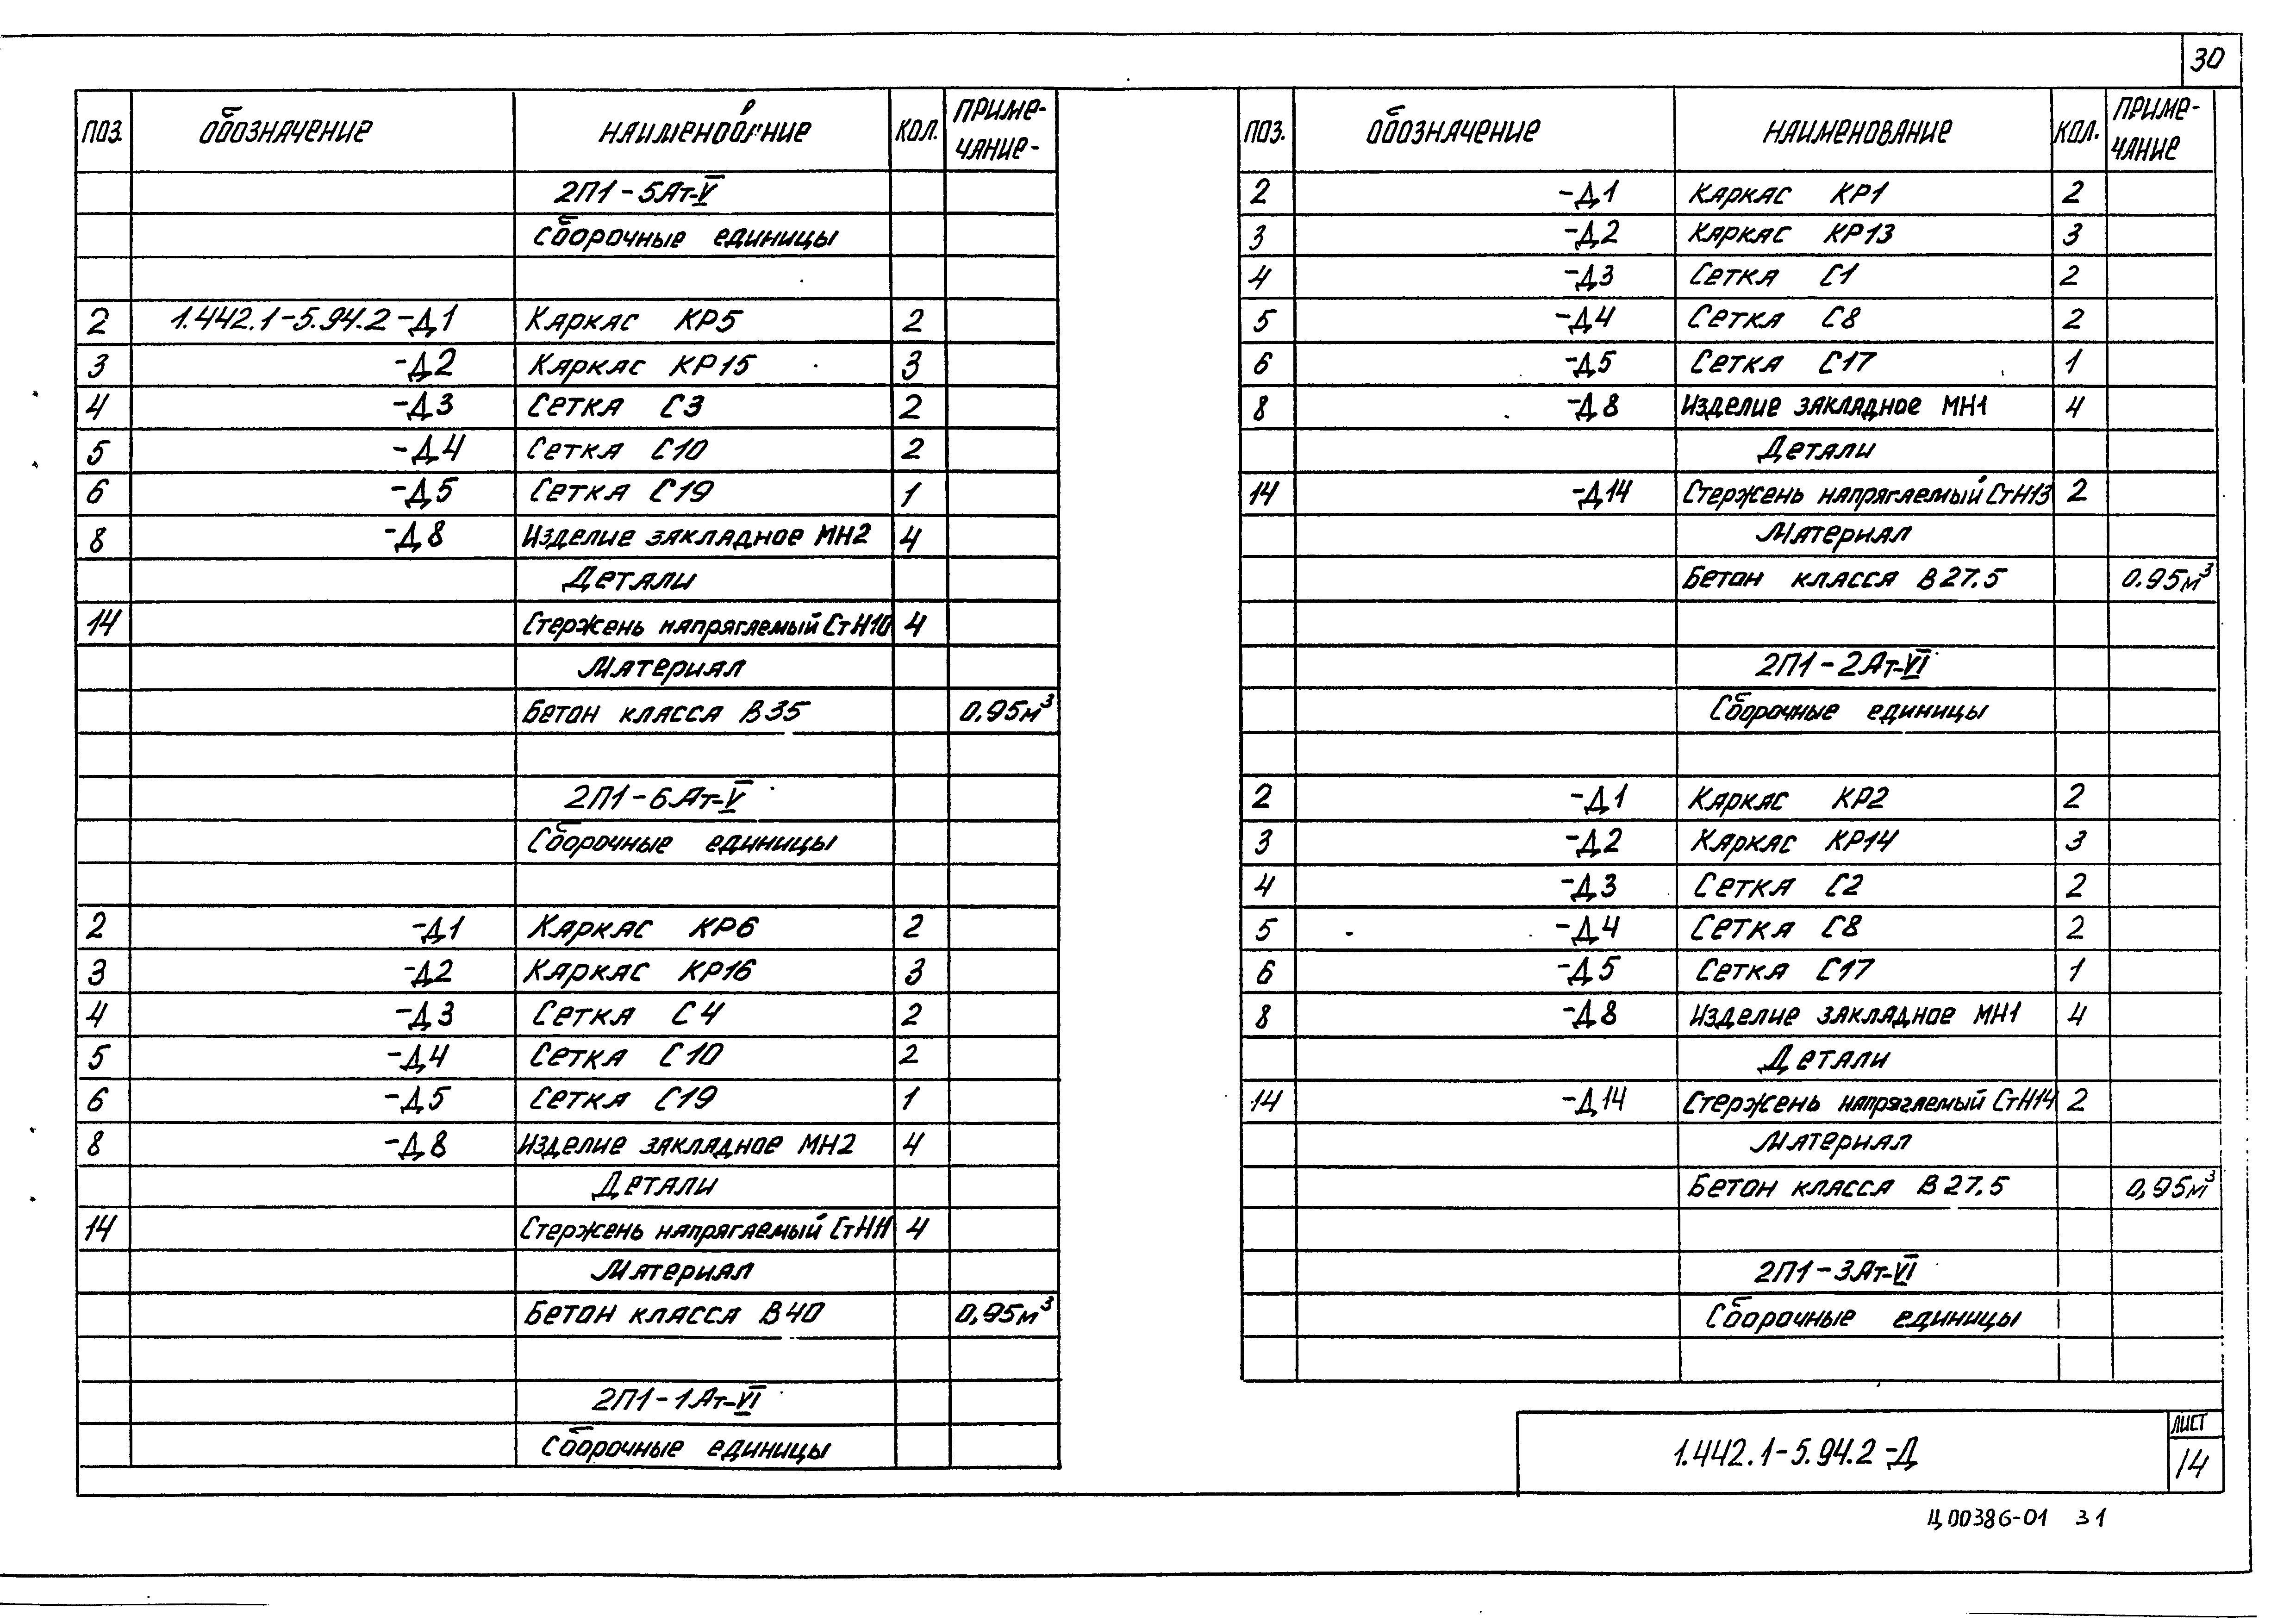 30
ПОЗ. ОБОЗНАЧЕНИЕ НАИМЕНОВАНИЕ КОЛ. ПРИМЕ-
ЧАНИЕ-
2П1-5Ат-V
Сборочные единицы
2 1.442.1-5.94.2-Д1 Каркас КР5 2
3 -Д2 Каркас КР15 3
4 -Д3 Сетка С3 2
5 -Д4 Сетка С10 2
6 -Д5 Сетка С19 1
8 -Д8 Изделие закладное МН2 4
Детали
14 Стержень напрягаемый СтН10 4
Материал
Бетон класса В35 0.95м³
2П1-6Ат-V
Сборочные единицы
2 -Д1 Каркас КР6 2
3 -Д2 Каркас КР16 3
4 -Д3 Сетка С4 2
5 -Д4 Сетка С10 2
6 -Д5 Сетка С19 1
8 -Д8 Изделие закладное МН2 4
Детали
14 Стержень напрягаемый СтН11 4
Материал
Бетон класса В40 0,95м³
2П1-1Ат-VI
Сборочные единицы
ПОЗ. ОБОЗНАЧЕНИЕ НАИМЕНОВАНИЕ КОЛ. ПРИМЕ-
ЧАНИЕ
2 -Д1 Каркас КР1 2
3 -Д2 Каркас КР13 3
4 -Д3 Сетка С1 2
5 -Д4 Сетка С8 2
6 -Д5 Сетка С17 1
8 -Д8 Изделие закладное МН1 4
Детали
14 -Д14 Стержень напрягаемый СтН13 2
Материал
Бетон класса В27.5 0.95м³
2П1-2Ат-VI
Сборочные единицы
2 -Д1 Каркас КР2 2
3 -Д2 Каркас КР14 3
4 -Д3 Сетка С2 2
5 -Д4 Сетка С8 2
6 -Д5 Сетка С17 1
8 -Д8 Изделие закладное МН1 4
Детали
14 -Д14 Стержень напрягаемый СтН14 2
Материал
Бетон класса В27.5 0,95м³
2П1-3Ат-VI
Сборочные единицы
1.442.1-5.94.2-Д
ЛИСТ
14
Ц00386-01 31